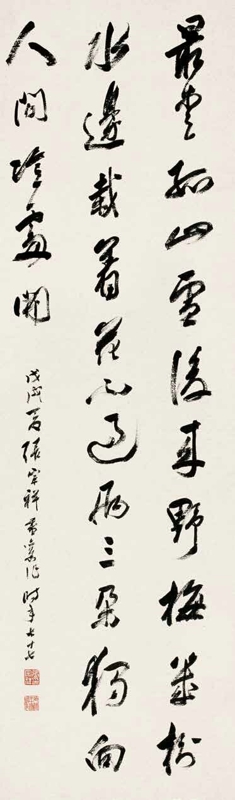 最愛孤山雪後來野梅幾樹
水邊栽著花不過兩三朵獨向
人間冷處開
戊戌夏張宗祥書舊作時年七十七